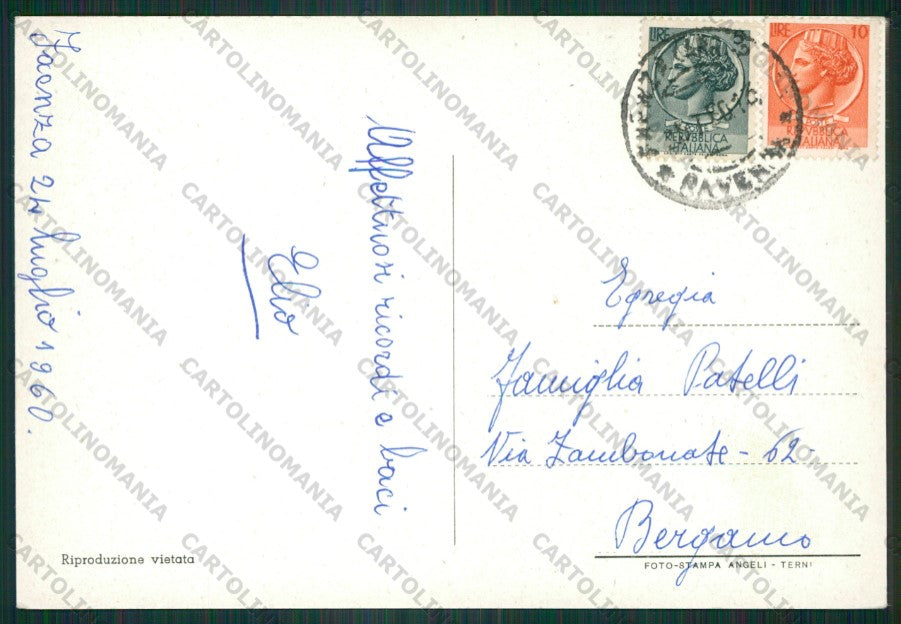 Faenza 24 luglio 1960.
Affettuosi ricordi e baci
Elio
LIRE
POSTE
REPVBBLICA
ITALIANA
LIRE 10
POSTE
REPVBBLICA
ITALIANA
FAENZA
RAVENNA
Egregia
Famiglia Patelli
Via Zambonate - 62
Bergamo
Riproduzione vietata
FOTO-STAMPA ANGELI - TERNI
CARTOLINOMANIA